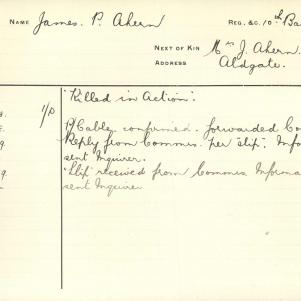 NAME James. P. Ahern REG. &C. 10th Ba
NEXT OF KIN Mrs J. Ahern.
ADDRESS Aldgate.
"Killed in Action".
8. 1/D
P/Cable confirmed. forwarded Co
9 Reply from Commis. per slip. Info
sent Inquirer.
9. "Slip" received from Commis Informa
sent Inquirer